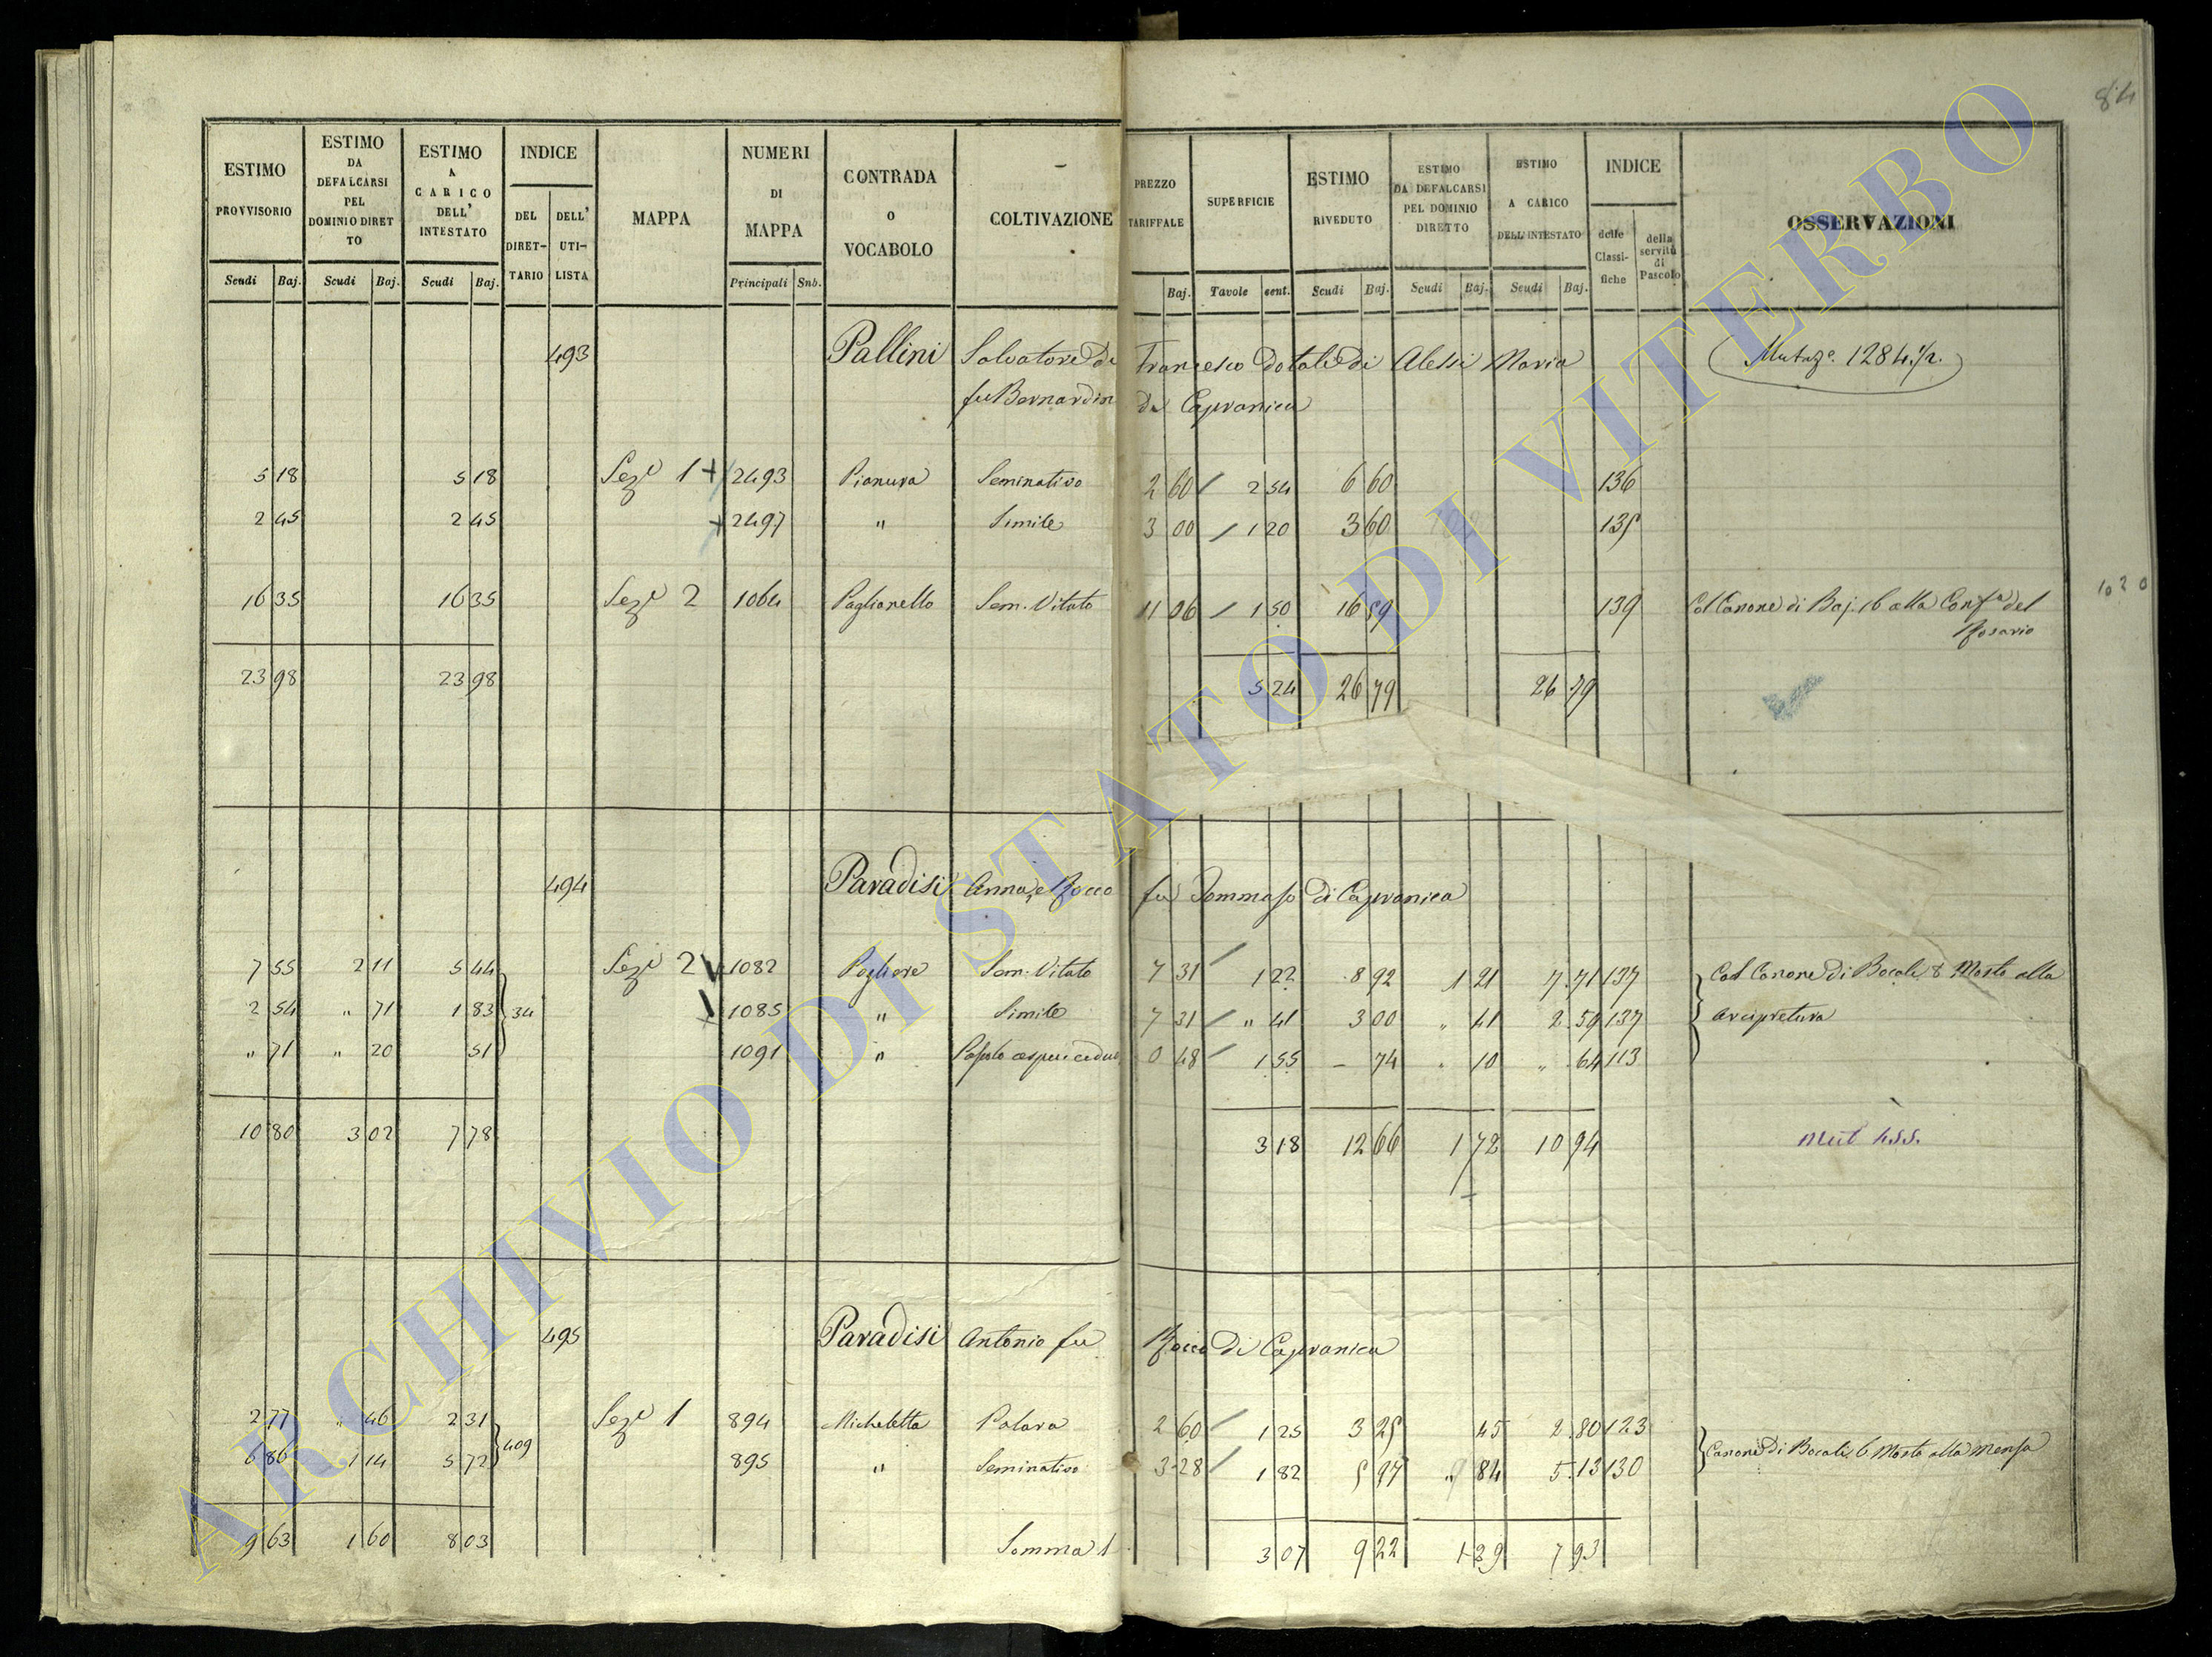 84
ESTIMO PROVVISORIO | ESTIMO DA DEFALCARSI PEL DOMINIO DIRETTO | ESTIMO A CARICO DELL' INTESTATO | INDICE | MAPPA | NUMERI DI MAPPA | CONTRADA O VOCABOLO | COLTIVAZIONE | PREZZO TARIFFALE | SUPERFICIE | ESTIMO RIVEDUTO | ESTIMO DA DEFALCARSI PEL DOMINIO DIRETTO | ESTIMO A CARICO DELL' INTESTATO | INDICE | OSSERVAZIONI
DEL DIRET-TARIO | DELL' UTI-LISTA | delle Classi-fiche | della servitù di Pascolo
Scudi | Baj. | Scudi | Baj. | Scudi | Baj. | Principali | Snb. | Baj. | Tavole | cent. | Scudi | Baj. | Scudi | Baj. | Scudi | Baj.
493 Pallini Salvatore di Francesco dotale di Alessi Maria
fu Bernardin di Capranica
5 18 | 5 18 | Sez.e 1 + 2493 | Pianura | Seminativo | 2 60 / 2 54 | 6 60 | 136
2 45 | 2 45 | + 2497 | " | Simile | 3 00 / 1 20 | 3 60 | 135
16 35 | 16 35 | Sez.e 2 | 1064 | Paglianello | Sem. Vitato | 11 06 / 1 50 | 16 59 | 139 | Col Canone di Baj. 16 alla Conf.a del
Rosario
1020
23 98 | 23 98 | 5 24 | 26 79 | 26 79
494 Paradisi Anna, e Rocco fu Tommaso di Capranica
7 55 | 2 11 | 5 44 | Sez.e 2 | 1082 | Pogliere | Sem. Vitato | 7 31 / 1 22 | 8 92 | 1 21 | 7 71 | 137 | Col Canone di Bocali 8 Mosto alla
2 54 | " 71 | 1 83 | 34 | 1085 | " | Simile | 7 31 / " 41 | 3 00 | " 41 | 2 59 | 137 | Arcipretura
" 71 | " 20 | 51 | 1091 | " | Pascolo cespu: ceduo | 0 48 / 1 55 | - 74 | " 10 | " 64 | 113
10 80 | 3 02 | 7 78 | 3 18 | 12 66 | 1 72 | 10 94 | Mut 455.
495 Paradisi Antonio fu Rocco di Capranica
2 77 | " 46 | 2 31 | Sez.e 1 | 894 | Micheletta | Palara | 2 60 / 1 25 | 3 25 | 45 | 2 80 | 123
6 86 | 1 14 | 5 72 | 409 | 895 | " | Seminativo | 3 28 / 1 82 | 5 97 | " 84 | 5 13 | 130 | Canone di Bocali 6 Mosto alla Mensa
9 63 | 1 60 | 8 03 | Somma 1 | 3 07 | 9 22 | 1 29 | 7 93
ARCHIVIO DI STATO DI VITERBO